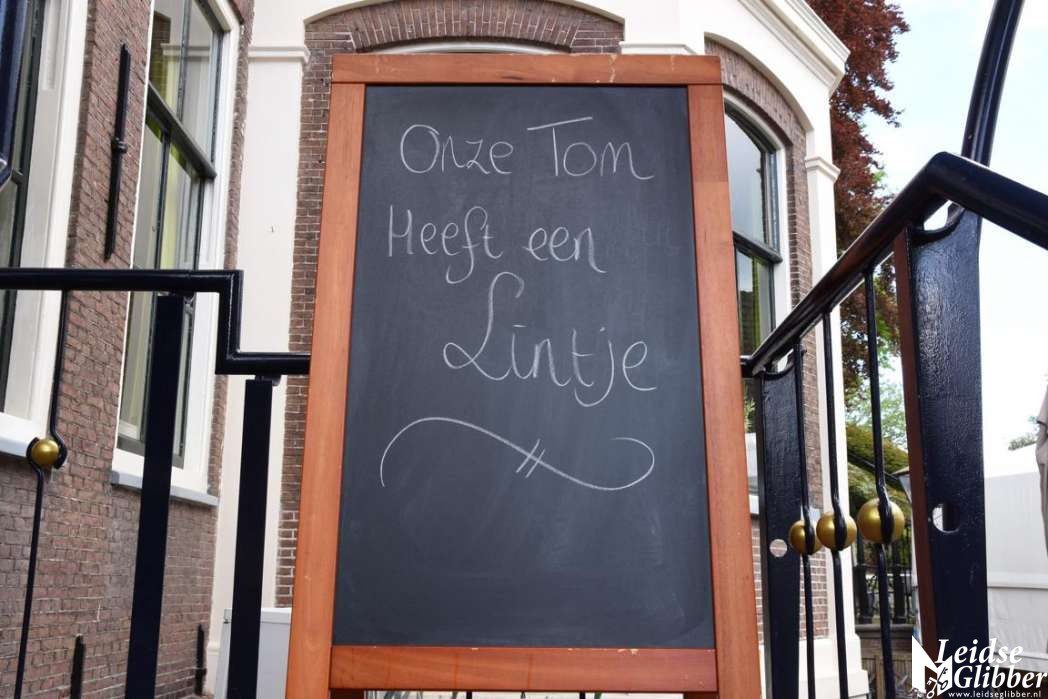 Onze Tom
Heeft een
Lintje
Leidse
Glibber
www.leidseglibber.nl